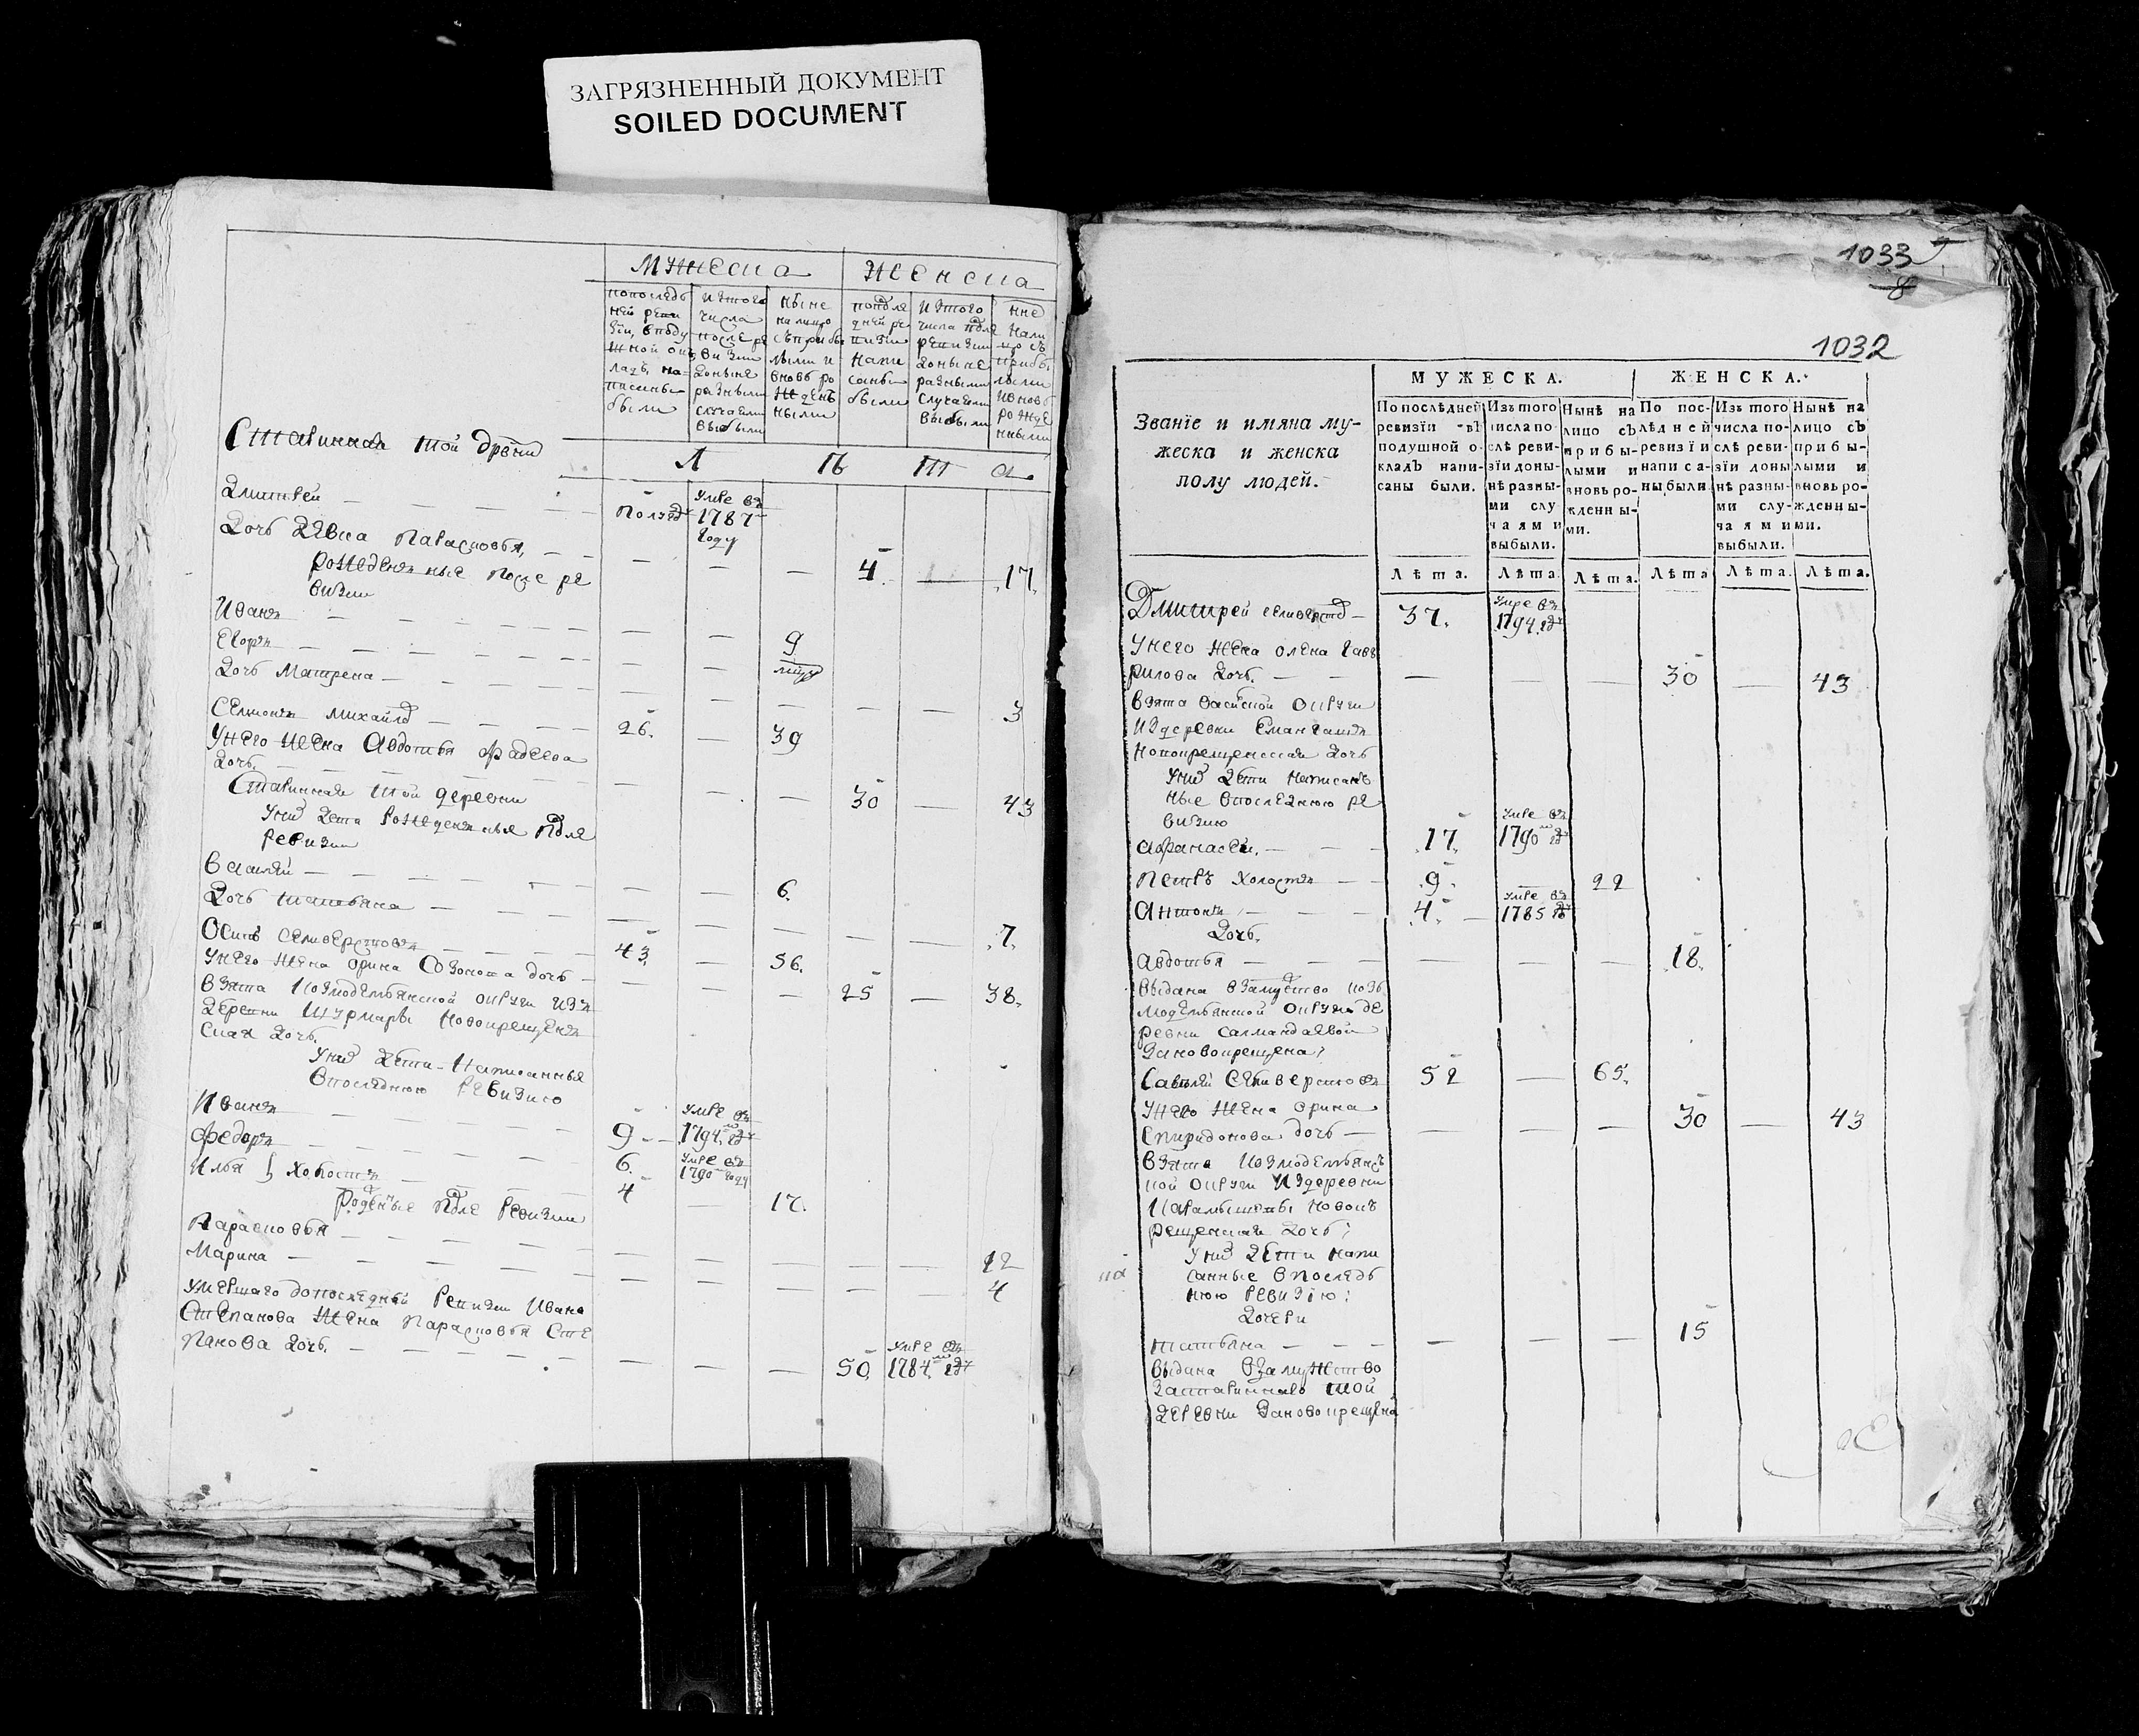 ЗАГРЯЗНЕННЫЙ ДОКУМЕНТ
SOILED DOCUMENT
Мужеска Женска
попоследъ
ней реви
зїи, вподу
шной ок
ладъ на
писаны
были
изтого
числа
после ре
визии
доныне
разными
случаями
выбыли
ныне
налицо
сприбы
лыми и
вновь ро
жденъ
ными
попосле
дней ре
визии
напи
саны
были
изтого
числа после
ревизии
доныне
разными
случаями
выбыли
нне
нали
цо съ
прибы
лыми
ивновь
рожде
нными
Ставинная той дрвни
Л Ѣ Т а
Дмитрей — полугоду умре въ 1787 году
Дочь девка Парасковья, — — 4 — 17.
рожденные после ре
визии
Иванъ — 9
Егоръ —
Дочь Матрена — 3
Семионъ михайло — 26. — 39
Унего жена Авдотья Фадеева
дочь. — 30 — 43
Ставинная той деревни
Уних дети рожденныя после
ревизии
Василей — 6.
Дочь татьяна — 7.
Осипъ селиверстовъ — 43 — 56.
Унего жена орина Созонова дочь — 25 — 38.
взята козмодемьянской округи изъ
деревни Шурмары новокрещенъ
ская дочь.
Уних дети написанныя
впоследнюю ревизию
Иванъ — 9 — умре въ 1794 году
Федоръ — 6. умре въ 1790 году
Илья } холостъ — 4 — 17.
рожденые после ревизии
Парасковья — 12
Марина — 4
Умершаго допоследней ревизии Ивана
Степанова жена Парасковья Сте
панова дочь. — 50. умре въ 1784 году
1033
8
1032
Званїе и имяна му-
жеска и женска
полу людей.
МУЖЕСКА. ЖЕНСКА.
По послѣдней
ревизїи въ
подушной о-
кладъ напи-
саны были.
Изъ того
числа по-
слѣ реви-
зїи доны-
нѣ разны-
ми слу
чаями
выбыли.
Нынѣ на
лицо съ
прибы-
лыми и
вновь ро-
жденны-
ми.
По пос-
лѣдней
ревизїи
написа-
ны были
Изъ того
числа по-
слѣ реви-
зїи доны
нѣ разны-
ми слу-
чаями
выбыли.
Нынѣ на
лицо съ
прибы-
лыми и
вновь ро-
жденны-
ми.
Лѣта. Лѣта. Лѣта. Лѣта Лѣта. Лѣта.
Дмитрей селиверстов — 37. умре въ 1794. году
Унего жена олена гав
рилова дочь. — 30 — 43
взята васильской округи
издеревни Емангашъ
новокрещенская дочь
Уних дети написанъ
ные впоследнюю ре
визию
Афанасей. — 17. умре въ 1790 году
Петръ холостъ — 9. — 22
Антонъ — 4. — умре въ 1785 году
Дочь.
Авдотья — 18.
выдана взамужство козь
модемьянской округи де
ревни салмандаевой
зановокрещена;
Савѣлей Селиверстовъ 52 — 65.
Унево жена орина
Спиридонова дочь — 30 — 43
взята козмодемьянсъ
кой округи издеревни
новокъ
рещенская дочь;
Уних дети напи
санные впоследъ
нюю ревизїю:
дочери
татьяна — 15
выдана взамужство
той
деревни зановокрещена